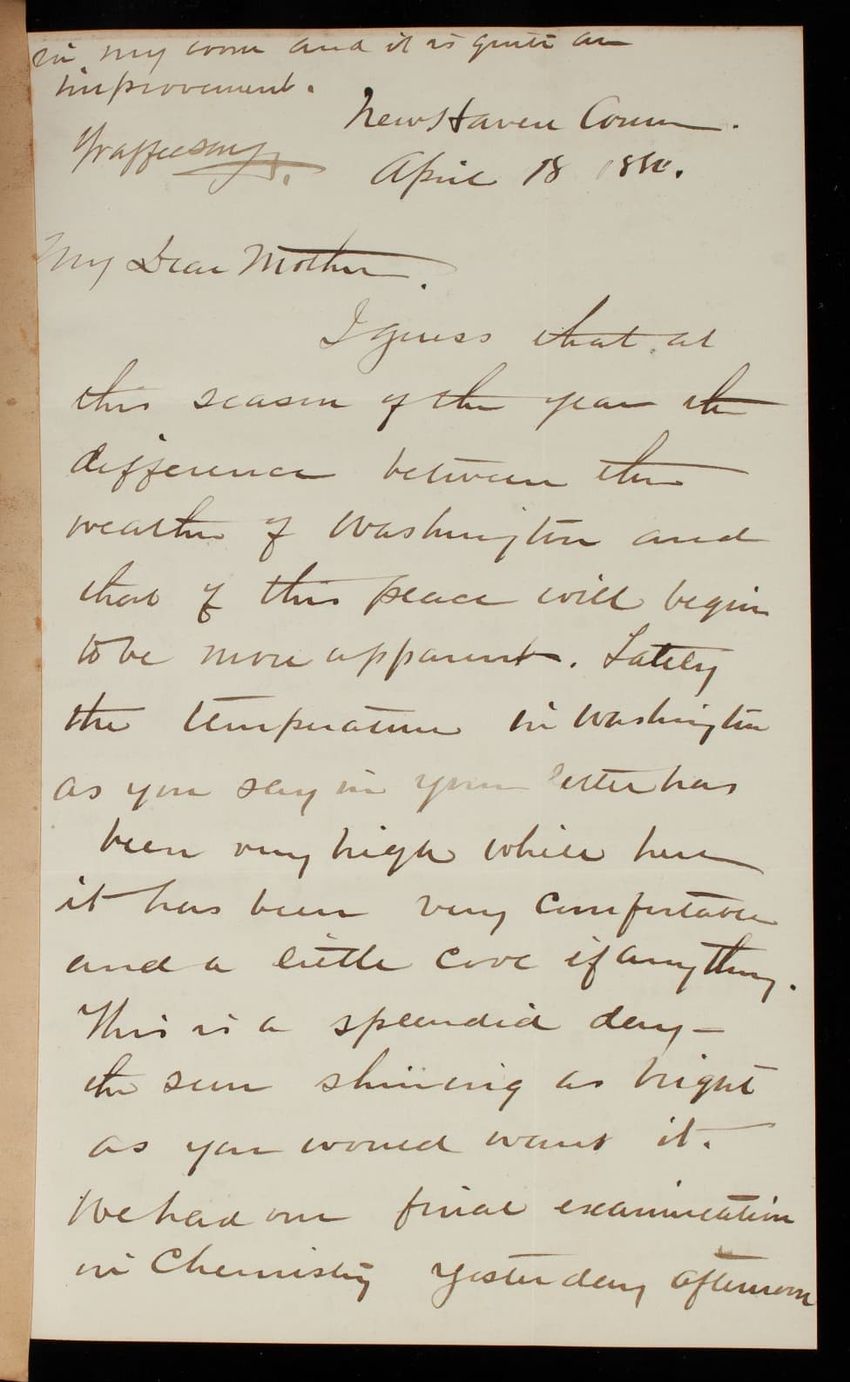 in my room and it is quite an
improvement.
New Haven Conn.
April 18 188
My Dear Mother.
I guess that at
this season of the year the
difference between the
weather of Washington and
that of this place will begin
to be more apparent. Lately
the temperature in Washington
as you say in your letter has
been very high while here
it has been very comfortable
and a little cool if anything.
This is a splendid day—
the sun shining as bright
as you would want it.
We had our final examination
in Chemistry yesterday afternoon